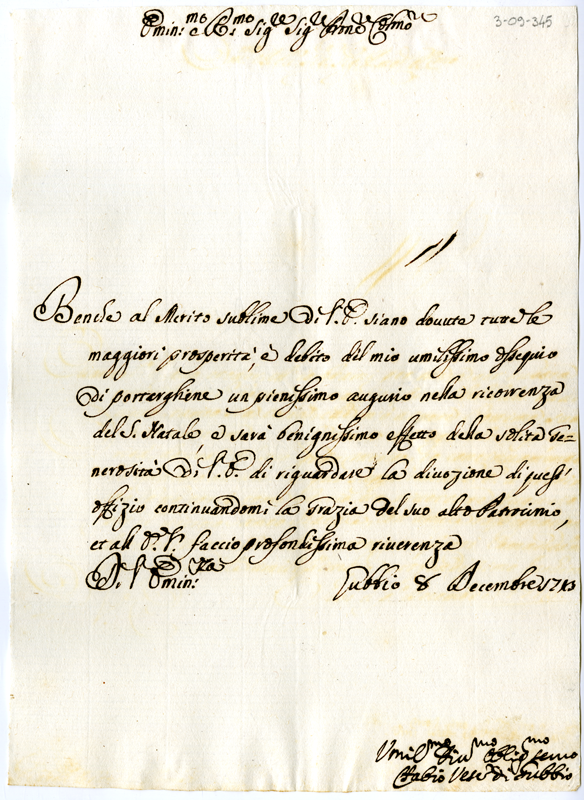 3-09-345
Emin:mo e R:mo Sigre Sigre Prone Colmo
Benche al Merito sublime di V.E. siano dovute tutte le
maggiori prosperità, è debito del mio umilissimo ossequio
di portarghene un pienissimo augurio nella ricorrenza
del S. Natale, e sarà benignissimo effetto della solita Ge-
nerosità di V.E. di riguardare la divozione di quest'
offizio continuandomi la Grazia del suo alto Patrocinio,
et all' E.V. faccio profondissima riverenza
Di V. Emin:za Gubbio 8 Decembre 1713
Umilmo Divmo Obligmo servo
Fabio Vesc di Gubbio